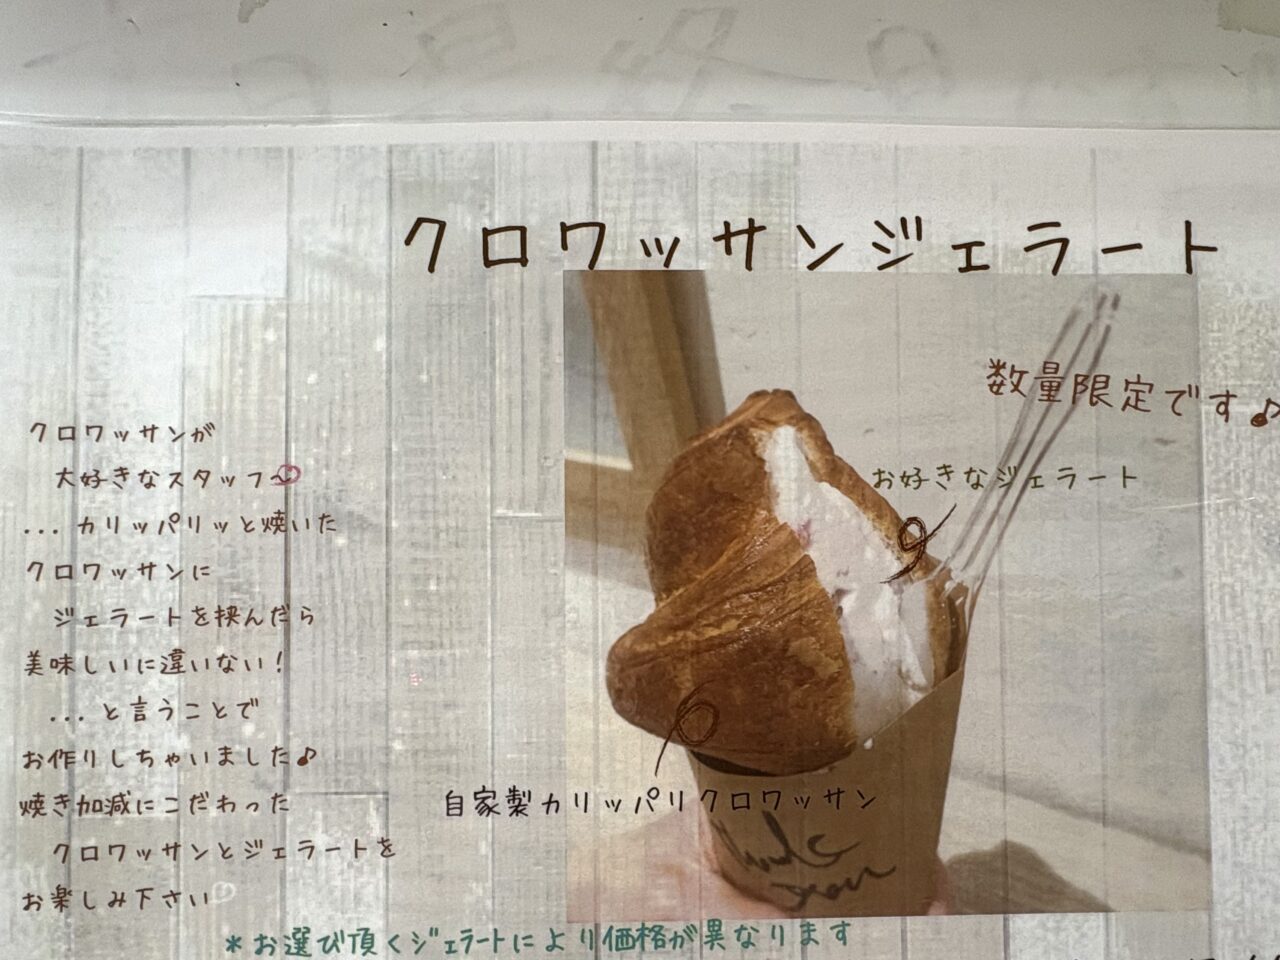 クロワッサンジェラート
数量限定です♪
お好きなジェラート
クロワッサンが
大好きなスタッフ
...カリッパリッと焼いた
クロワッサンに
ジェラートを挟んだら
美味しいに違いない!
...と言うことで
お作りしちゃいました♪
焼き加減にこだわった
クロワッサンとジェラートを
お楽しみ下さい
自家製カリッパリクロワッサン
*お選び頂くジェラートにより価格が異なります